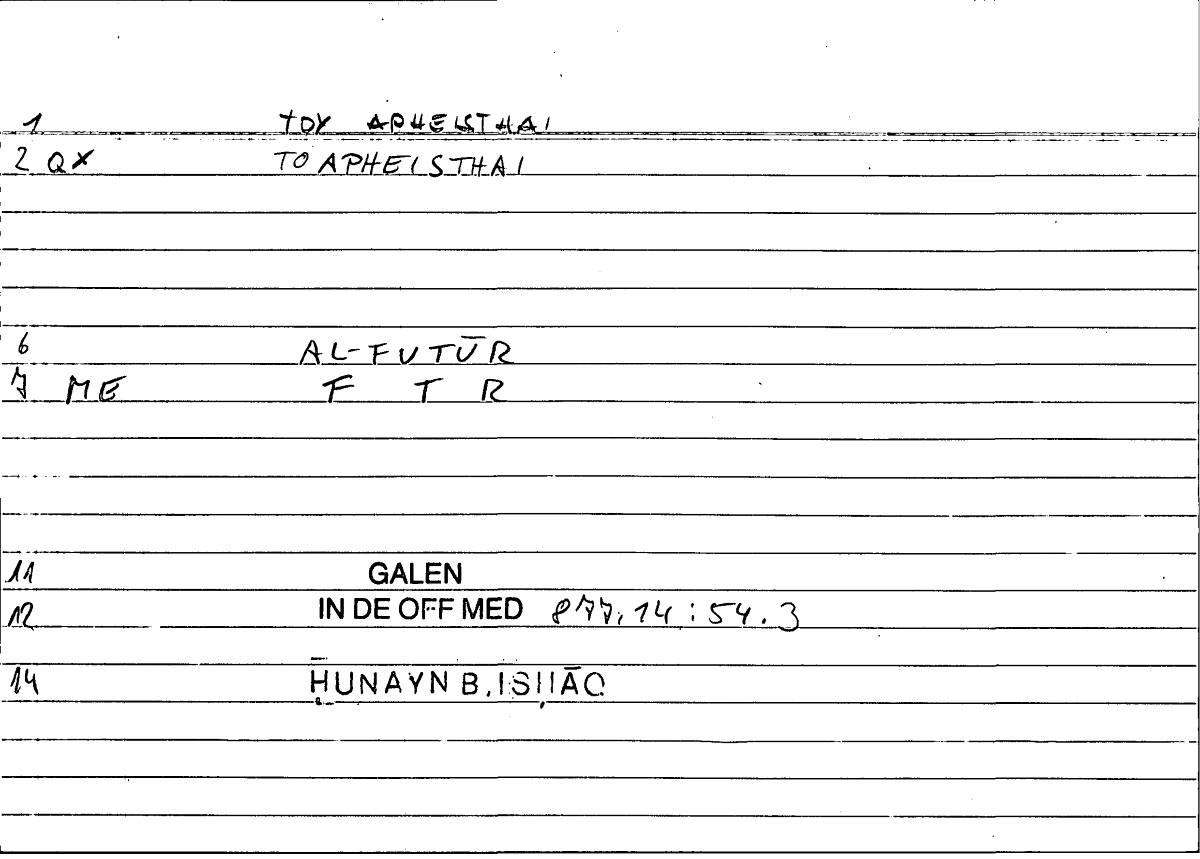 1 TOY APHEISTHAI
2 QX TO APHEISTHAI
6 AL-FUTŪR
7 ME F T R
11 GALEN
12 IN DE OFF MED 877,14 : 54.3
14 ḤUNAYN B. ISḤĀQ